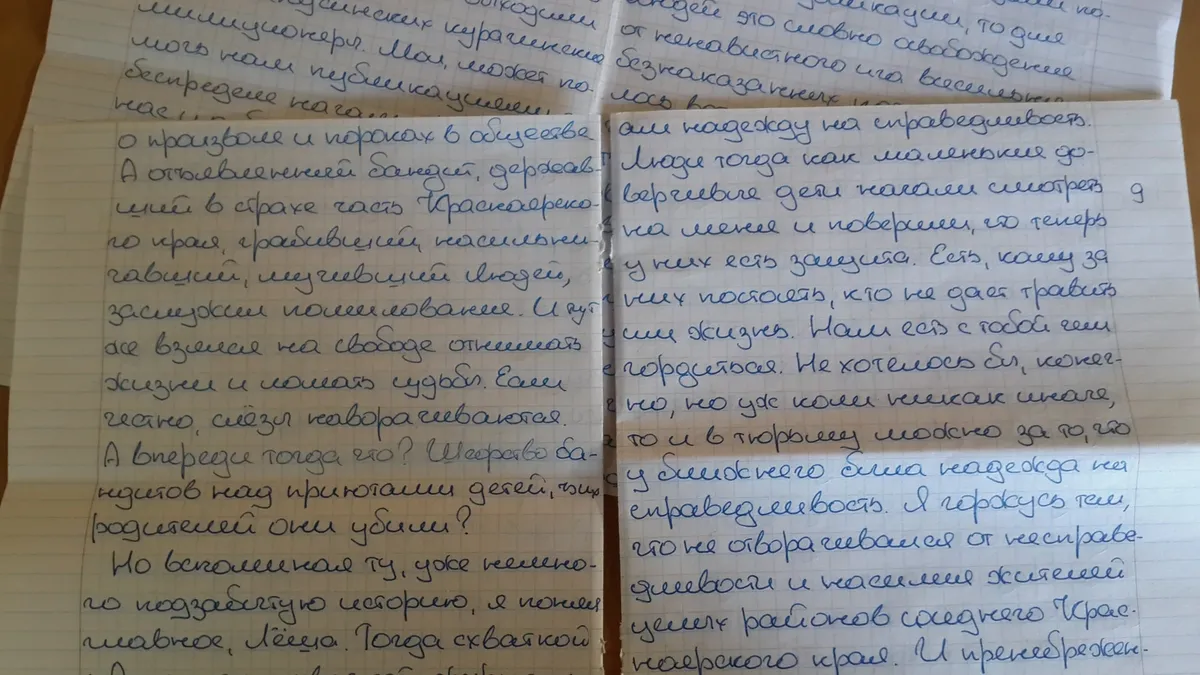 выходили
курагинские
милиционеры. Мол, может по-
мочь нам публикациями
беспределе
то для
людей это словно освобождение
от ненавистного ига
безнаказанных
лось
о произволе и пороках в обществе
А отъявленный бандит, держав-
ший в страхе часть Красноярско-
го края, грабивший, насильни-
чавший, мучивший людей,
заслужил помилование. И тут
же взялся на свободе отнимать
жизни и ломать судьбы. Если
честно, слёзы наворачиваются.
А впереди тогда что? Шефство ба-
ндитов над приютами детей, чьих
родителей они убили?
Но вспоминая ту, уже немно-
го подзабытую историю, я понял
главное, Лёша. Тогда схваткой
9
али надежду на справедливость.
Люди тогда как маленькие до-
верчивые дети начали смотреть
на меня и поверили, что теперь
у них есть защита. Есть, кому за
них постоять, кто не даст травить
им жизнь. Нам есть с тобой чем
гордиться. Не хотелось бы, конеч-
но, но уж коли никак иначе,
то и в тюрьму можно за то, что
у ближнего была надежда на
справедливость. Я горжусь тем,
что не отворачивался от несправе-
дливости и насилия жителей
целых районов среднего Крас-
ноярского края. И пренебрежен-